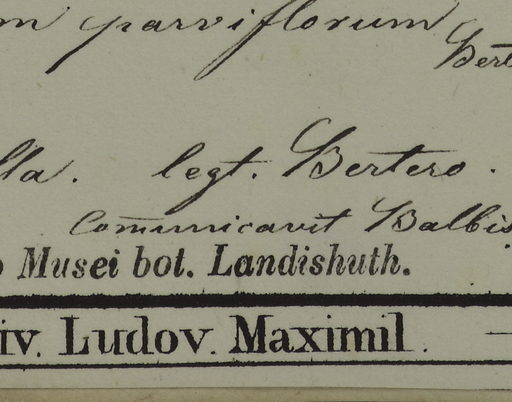 m parviflorum
Bert
lla. legt. Bertero.
Comunicavit Balbis
o Musei bot. Landishuth.
iv. Ludov. Maximil.